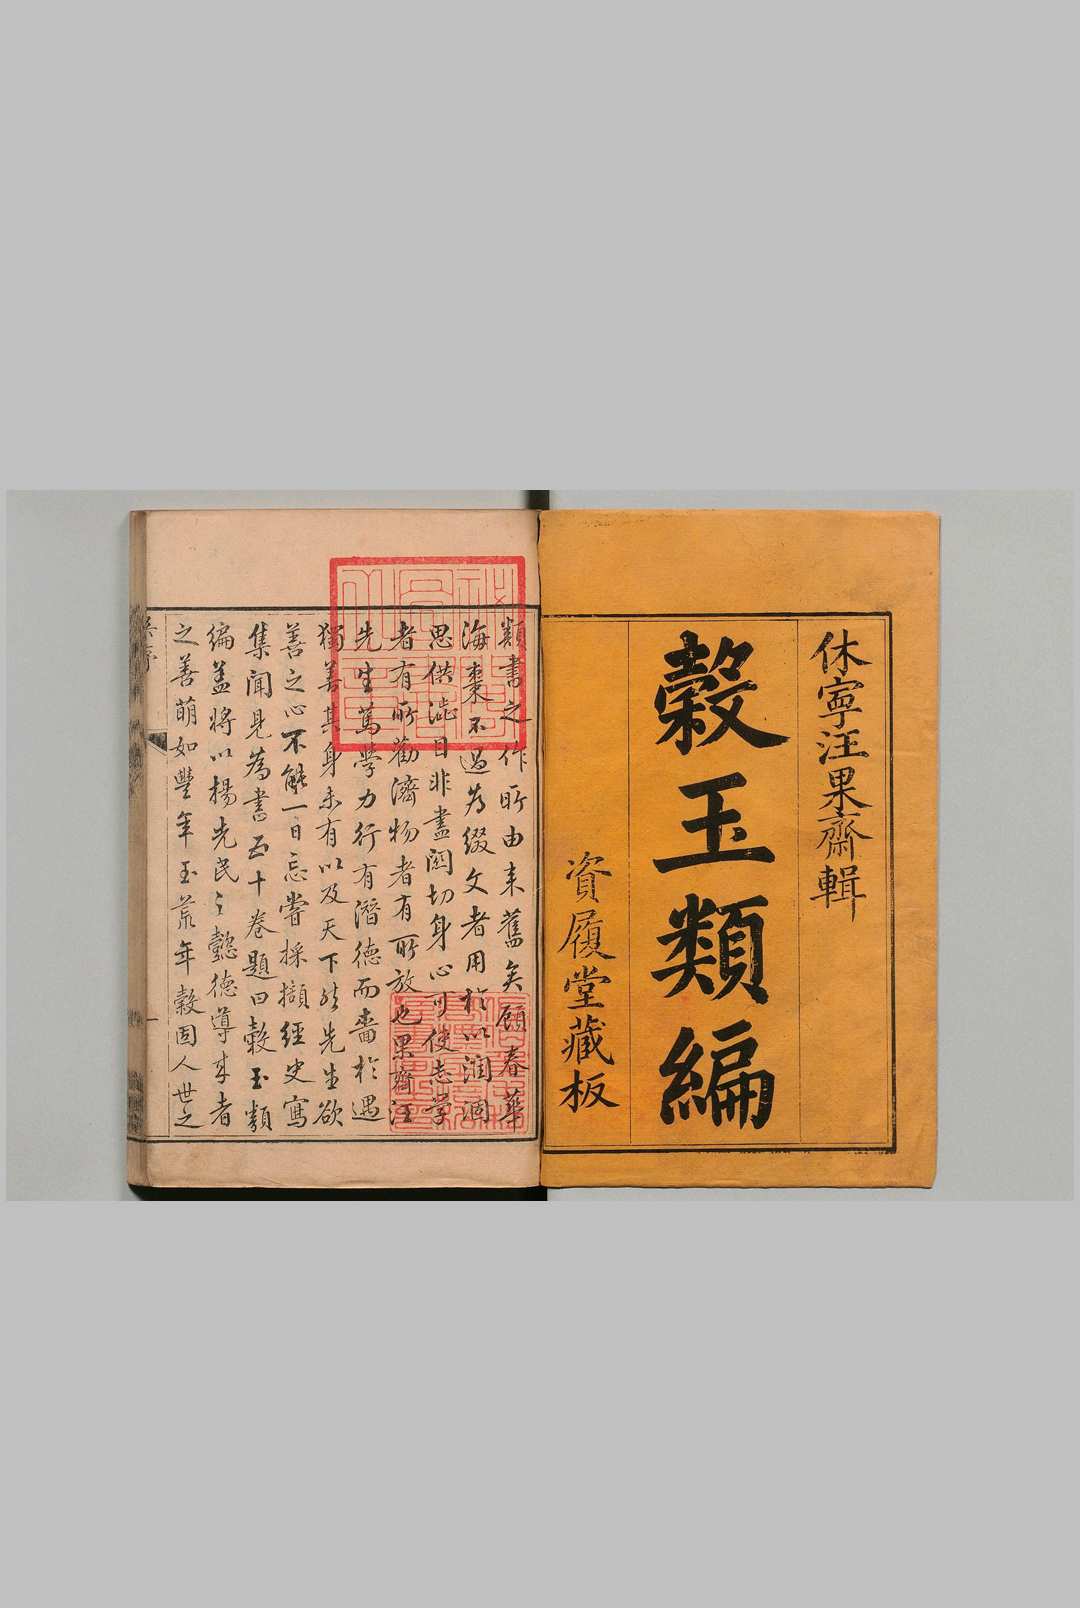 休寧汪果齋輯
穀玉類編
資履堂藏板
類書之作所由来舊矣顧春華
海棗不過為綴文者用於以潤涸
思供澁目非盡闗切身心可使志學
者有所勸濟物者有所放也果齋汪
先生篤學力行有潛德而嗇於遇
獨善其身未有以及天下然先生欲
善之心不能一日忘嘗採擷經史寫
集聞見為書五十卷題曰穀玉類
編蓋將以揚先民之懿德導来者
之善萌如豐年玉荒年穀固人世之